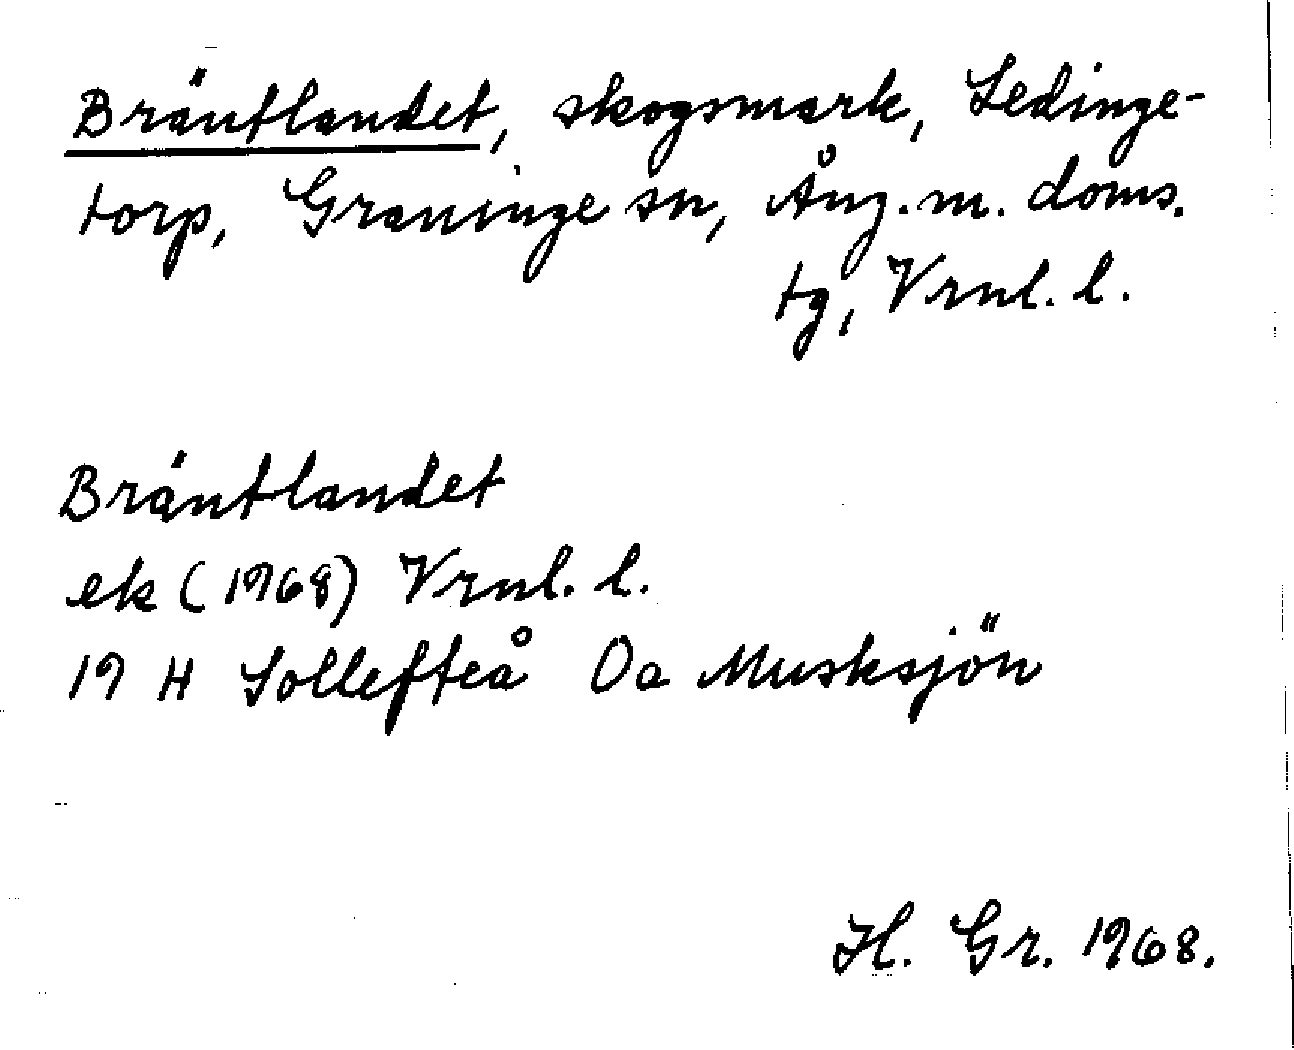 Bräntlandet, skogsmark, Ledinge-
torp, Graninge sn, Ång. m. doms.
tg, Vrnl. l.
Bräntlandet
ek (1968) Vrnl. l.
19 H Sollefteå 0a Musksjön
H. Gr. 1968.